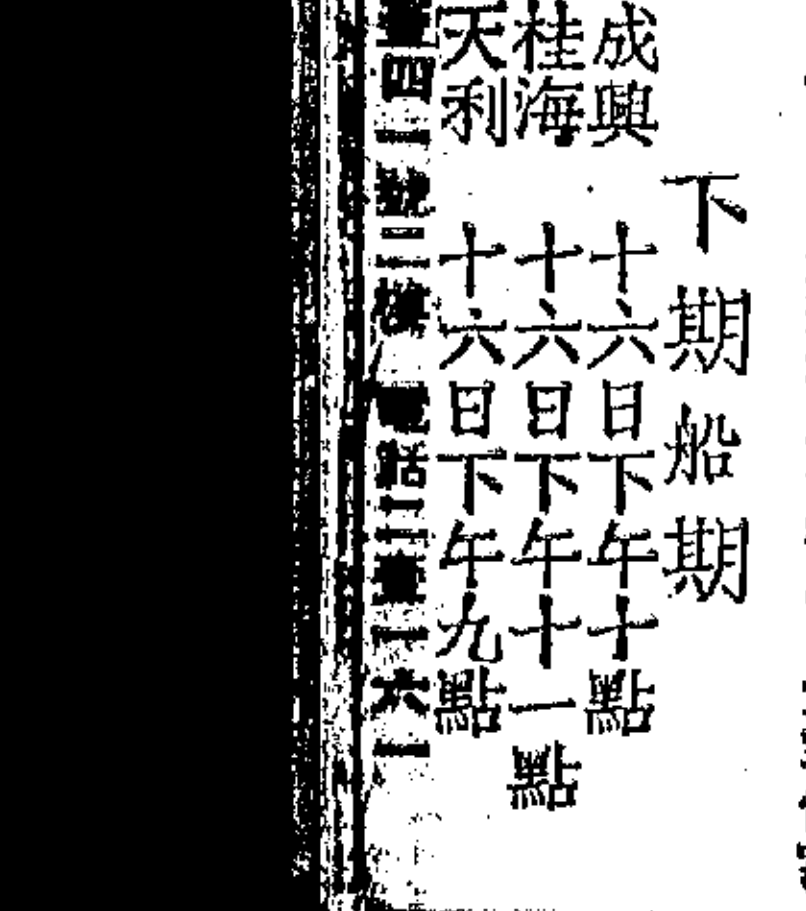 下期船期
成興 十六日下午十點
桂海 十六日下午十一點
天利 十六日下午九點
四一號二樓 電話二一壹一六一